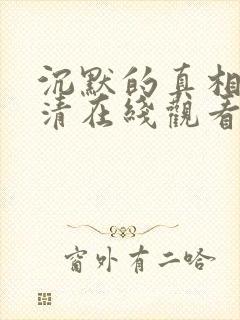 沉默的真相
清在綫觀看
窗外有二哈